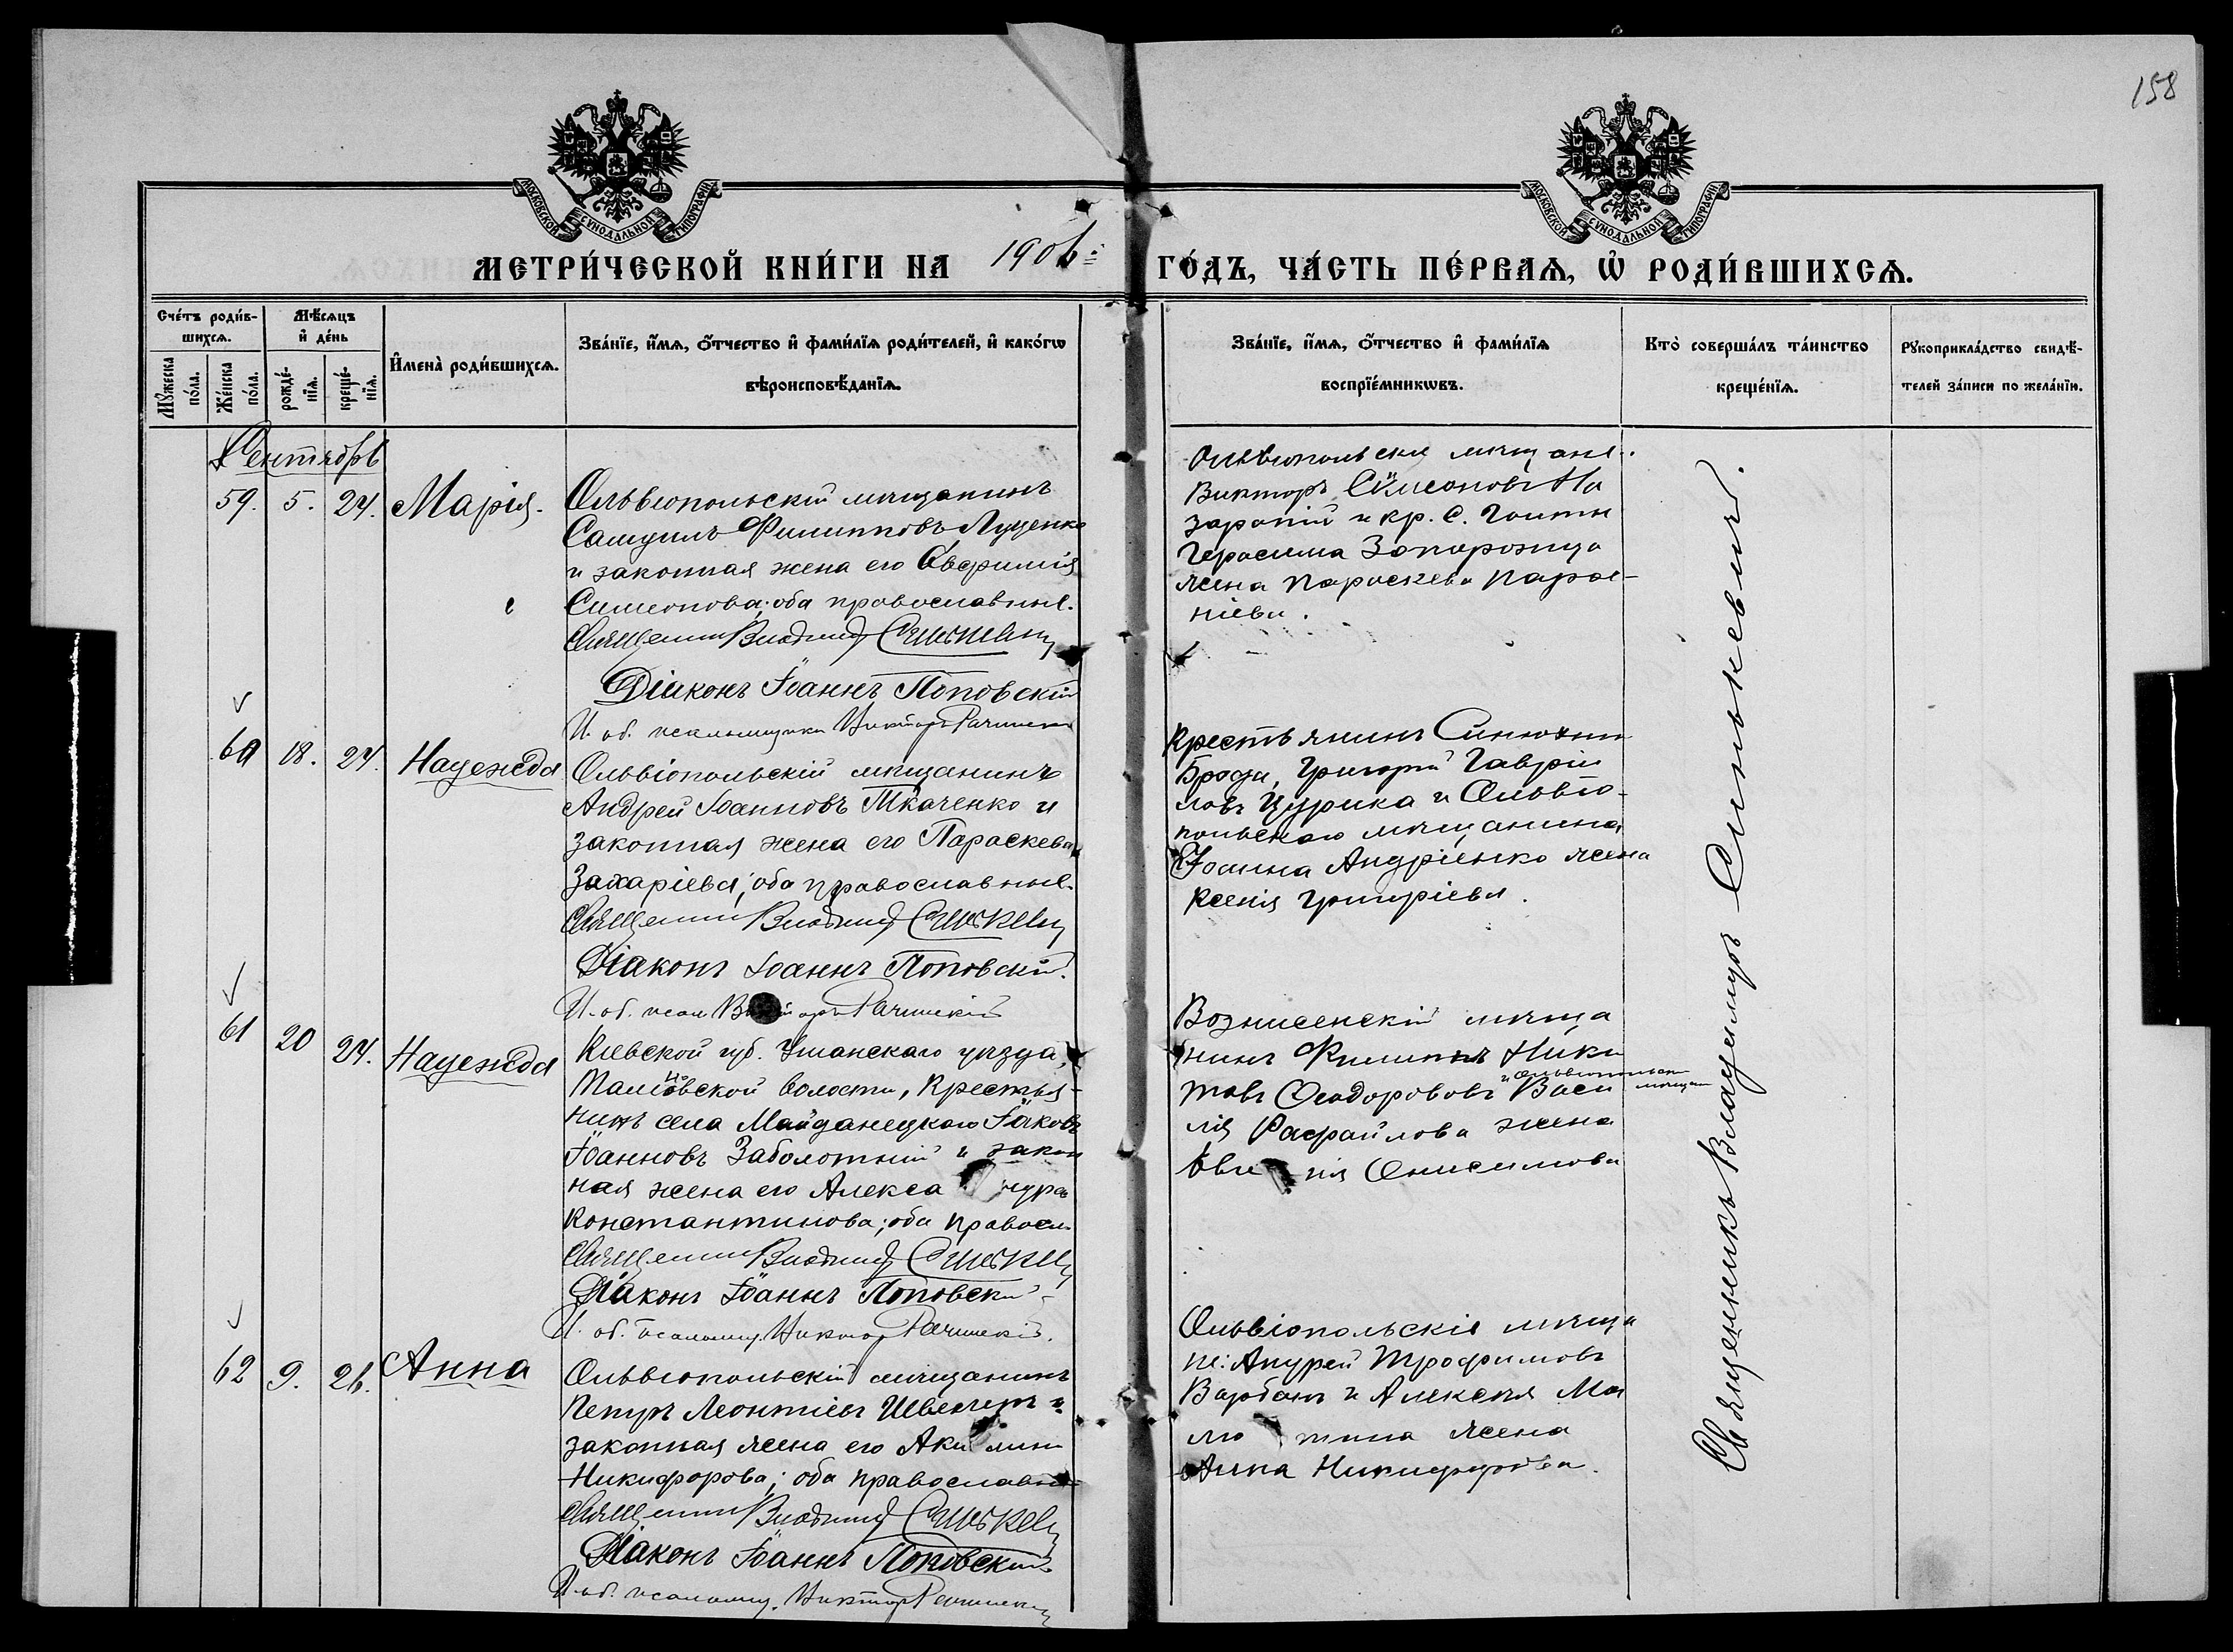 158
МОСКОВСКОЙ СѴНОДАЛЬНОЙ ТИПОГРАФІИ
МОСКОВСКОЙ СѴНОДАЛЬНОЙ ТИПОГРАФІИ
МЕТРИ́ЧЕСКОЙ КНИ́ГИ НА 1906 ГО́ДЪ, ЧА́СТЬ ПЕ́РВАѦ, Ѡ҆ РОДИ́ВШИХСѦ.
Сче́тъ роди́в-
шихсѧ.
Мꙋ́жеска по́ла.
Же́нска по́ла.
Мѣ́сѧцъ
и҆ де́нь
рожде́-
нїѧ.
креще́-
нїѧ.
И҆мена̀ роди́вшихсѧ.
Зва́нїе, и҆́мѧ, ѻ҆́тчество и҆ фами́лїѧ роди́телей, и҆ како́гѡ
вѣроисповѣ́данїѧ.
Зва́нїе, и҆́мѧ, ѻ҆́тчество и҆ фами́лїѧ
воспрїе́мникѡвъ.
Кто̀ соверша́лъ та́инство
креще́нїѧ.
Рꙋкоприкла́дство свидѣ́-
телей за́писи по жела́нїю.
Сентябрь
59. 5. 24. Марія.
Ольвіопольскій мѣщанинъ
Самуилъ Филипповъ Луценко
и законная жена его Евфимія
Симеонова; оба православные.
Священник Владимир Синькевич
Діаконъ Іоаннъ Поповскій
И. об. псаломщика Викторъ Рачинскій
Ольвіопольскіе мѣщане.
Викторъ Симеоновъ На
зарoтій и кр. с. Голты
Герасима Запорожца
жена Параскева
60 18. 24. Надежда
Ольвіопольскій мѣщанинъ
Андрей Іоанновъ Ткаченко и
законная жена его Параскева
Захаріева; оба православные.
Священник Владимир Синькевич
Діаконъ Іоаннъ Поповскій.
И. об. псал Викторъ Рачинскій
Крестьянинъ Синюхин
Брода, Григорій Гаврiи
ловъ Цурика и Ольвіо-
польскаго мѣщанина
Іоанна Андріенко жена
Ксенія Григоріева.
61 20 24. Надежда
Кіевской губ. Уманскаго уѣзда,
Тальновской волости, Крестья-
нинъ села Майданецкаго Іаковъ
Іоанновъ Заболотній и закон
ная жена его Александра
Константинова; оба правосл.
Священник Владимир Синькевич
Діаконъ Іоаннъ Поповскій
И. об. псаломщ. Викторъ Рачинскій.
Вознесенскій мѣща
нинъ Филиппъ Ники
товъ Ѳеодоровъ и Ольвіопольск мѣщан Васи
лія Рафаилова жена
Онисимова
62 9. 26. Анна
Ольвіопольскій мѣщанинъ
Петръ Леонтіевъ и
законная жена его Акилина
Никифорова; оба православные
Священник Владимир Синькевич
Діаконъ Іоаннъ Поповскій
И. об. псаломщ. Викторъ Рачинскій
Ольвіопольскіе мѣща
не: Андрей Трофимовъ
Варбанъ и Алексѣя Ма
жена
Анна Никифорова.
Священникъ Владимиръ Синькевичъ.